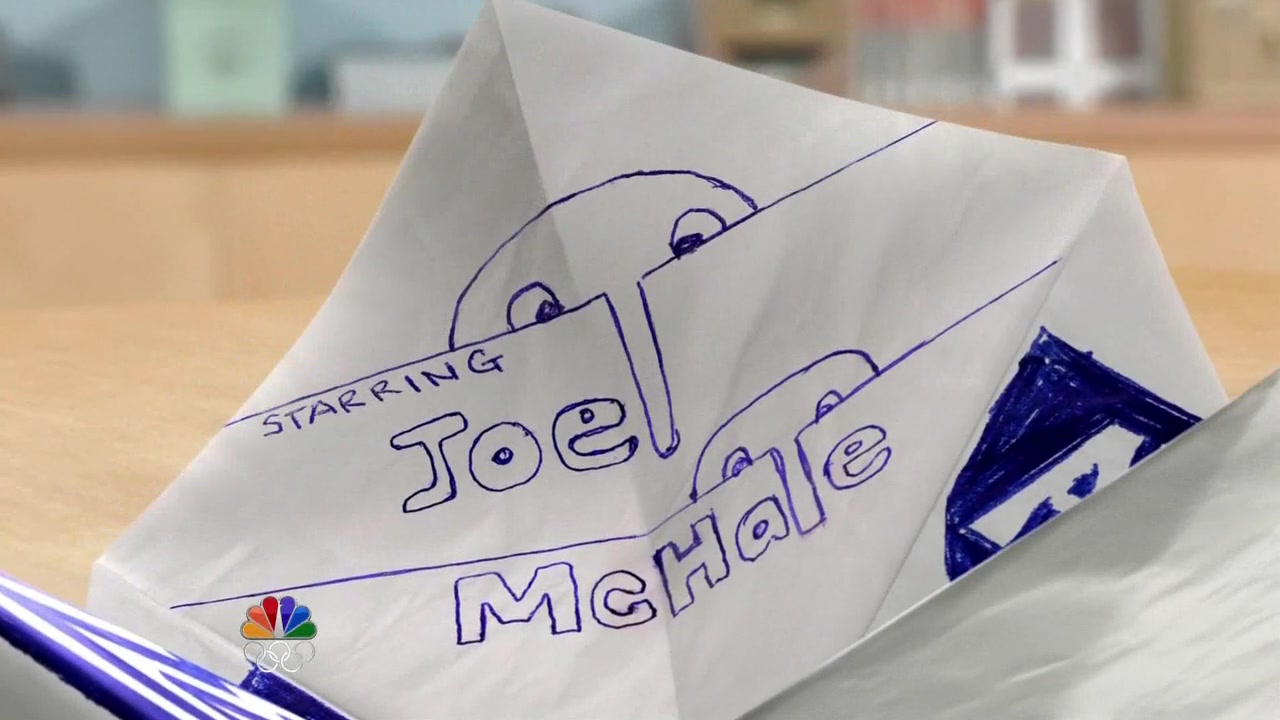 STARRING
Joel
McHale